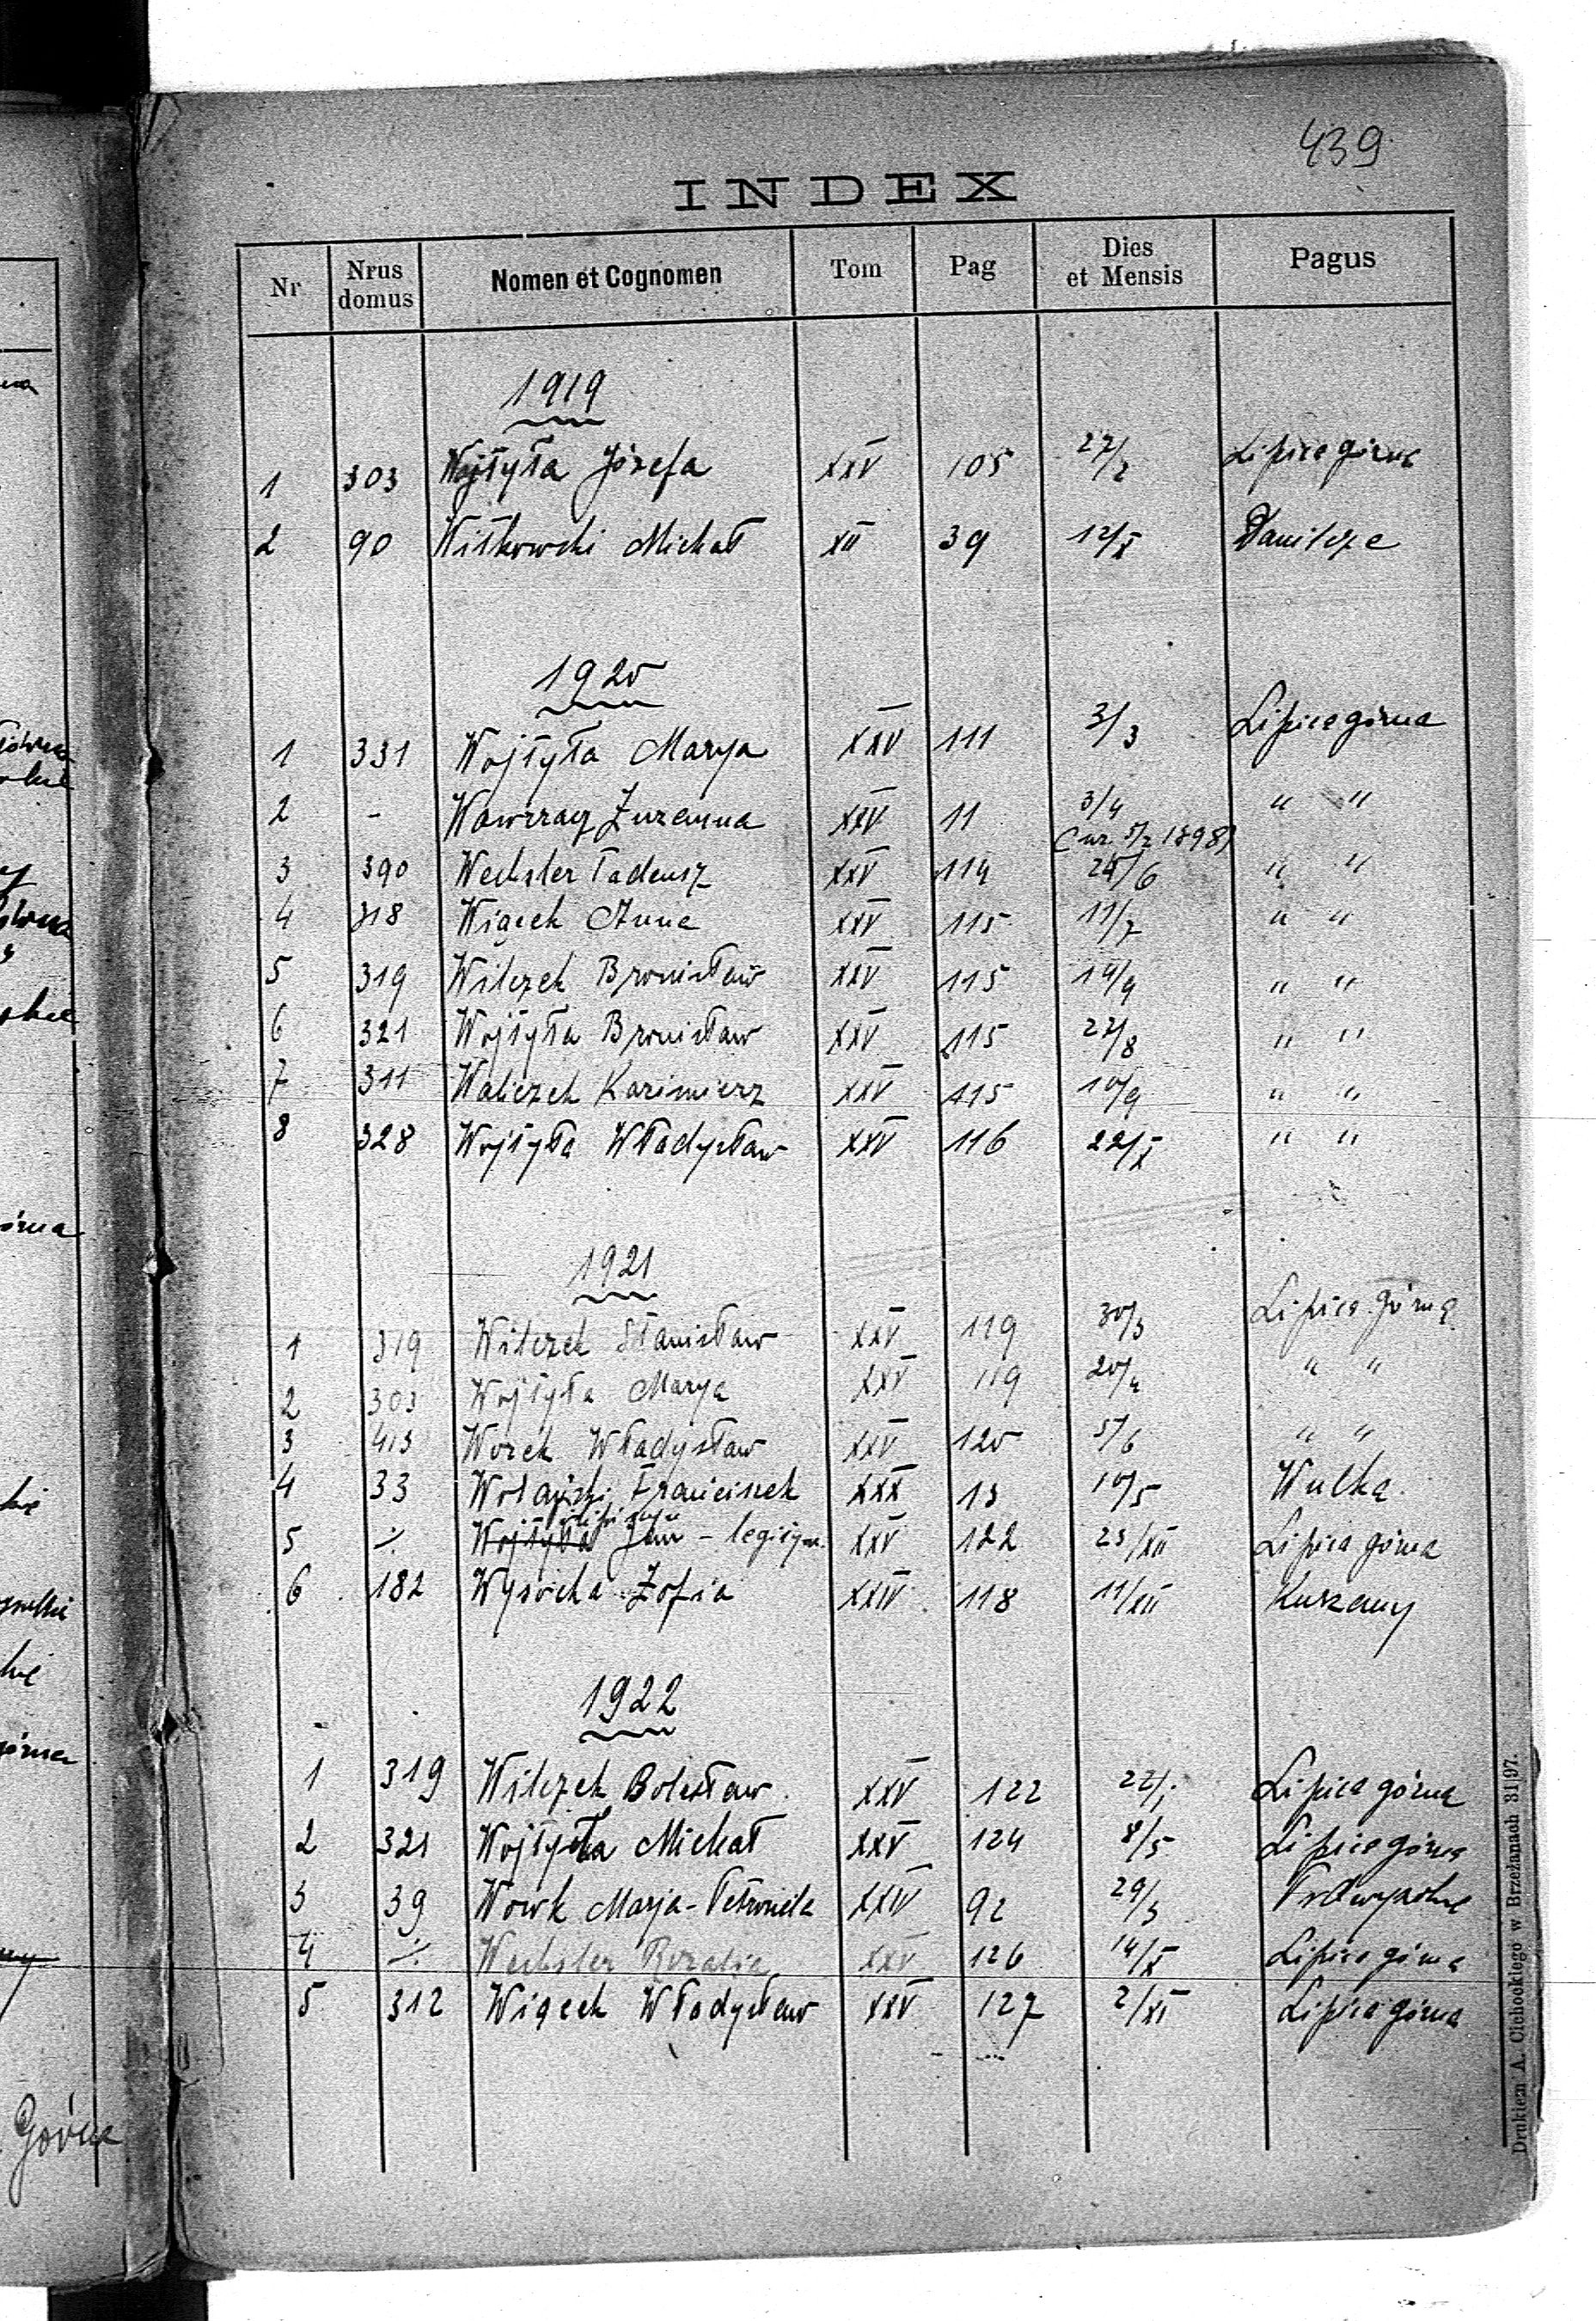 439
INDEX
Nr Nrus domus Nomen et Cognomen Tom Pag Dies et Mensis Pagus
1919
1 303 Wojtyła Józefa XXV 105 27/7 Lipica górna
2 90 Witkowski Michał XII 39 12/X Danilcze
1920
1 331 Wojtyła Marya XXV 111 3/3 Lipica górna
2 - Wawrzacz Zuzanna XXV 11 3/4 " "
(ur. 5/7 1898)
3 390 Wechsler Tadeusz XXV 114 /6 " "
4 318 Wiącek Anna XXV 115 11/7 " "
5 319 Wilczek Bronisław XXV 115 14/9 " "
6 321 Wojtyła Bronisław XXV 115 27/8 " "
7 311 Waliczek Kazimierz XXV 115 10/9 " "
8 328 Wojtyła Władysław XXV 116 22/X " "
1921
1 319 Wilczek Stanisław XXV 119 30/3 Lipica Górna
2 303 Wojtyła Marya XXV 119 20/4 " "
3 413 Worek Władysław XXV 120 5/6 " "
4 33 Franciszek XXX 13 10/5 Wulka
5 ⁒ Wojtyła Jan - legitym. XXV 122 25/XII Lipica górna
6 182 Wysocka Zofia XXIV 118 11/XII Kurzany
1922
1 319 Wilczek Bolesław XXV 122 22/I Lipica górna
2 321 Wojtyła Michał XXV 124 8/5 Lipica górna
3 39 Wowk Marja-Petronela XXIV 92 29/3
4 ⁒ Wechsler Rozalia XXV 126 14/X Lipica górna
5 312 Wiącek Władysław XXV 127 2/XI Lipica górna
Drukiem A. Cichockiego w Brzeżanach 31|97.
Górna